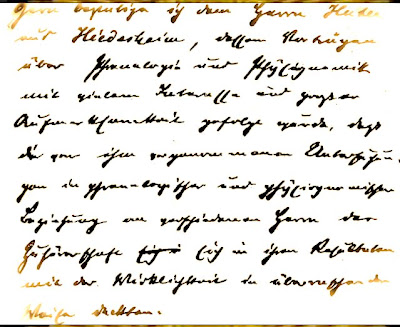 Gern bestätige ich dem Herrn
aus Hildesheim, dessen Vorträgen
über Phrenologie und Physiognomik
mit vielem Interesse und großer
Aufmerksamkeit gefolgt wurde, daß
die von ihm vorgenommenen Untersuchun-
gen in phrenologischer und physiognomischer
Beziehung an verschiedenen Herrn der
Zuhörerschaft sich in ihren Resultaten
mit der Wirklichkeit in überraschender
Weise deckten.